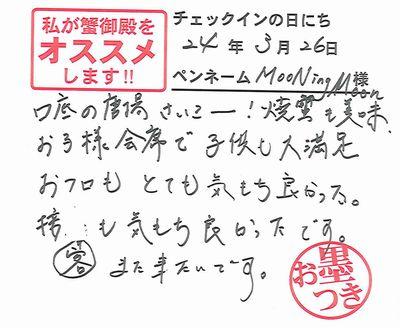 私が蟹御殿を
オススメ
します!!
チェックインの日にち
24年3月26日
ペンネーム MooNingMoon様
の唐揚さいこー!焼蟹も美味
お子様会席で子供も大満足
おフロもとても気もち良かった。
接客も気もち良かったです。
また来たいです。
お墨つき